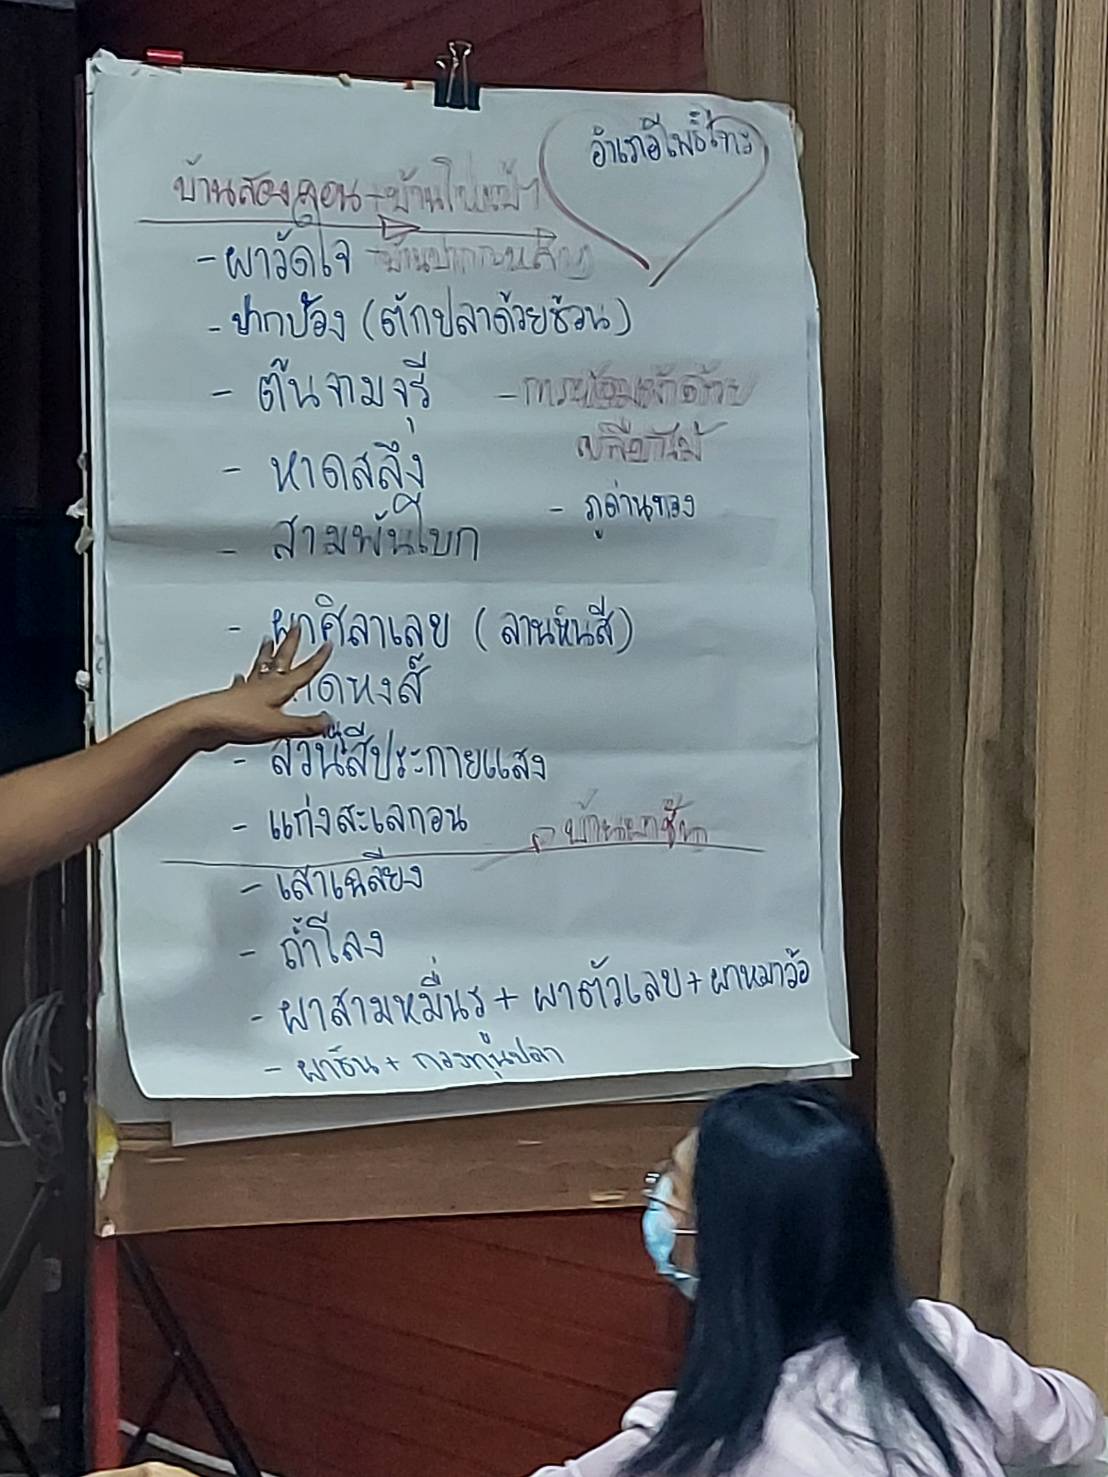 อำเภอโพธิ์ไทร
บ้านสองคอน + บ้าน
- ผาวัดใจ
- ปากบ้อง (ตักปลาด้วยช้อน)
- ต้นจามจุรี
- หาดสลึง
- ภูด่านทอง
- สามพันโบก
- ผาศิลาเลข (ลานหินสี)
หาดหงส์
- สวนสีประกายแสง
- แก่งสะเลกอน
- เสาเฉลียง
- ถ้ำโลง
- ผาสามหมื่นร + ผาตัวเลข + ผาหมาว้อ
- ผาชัน + กองทุนปลา